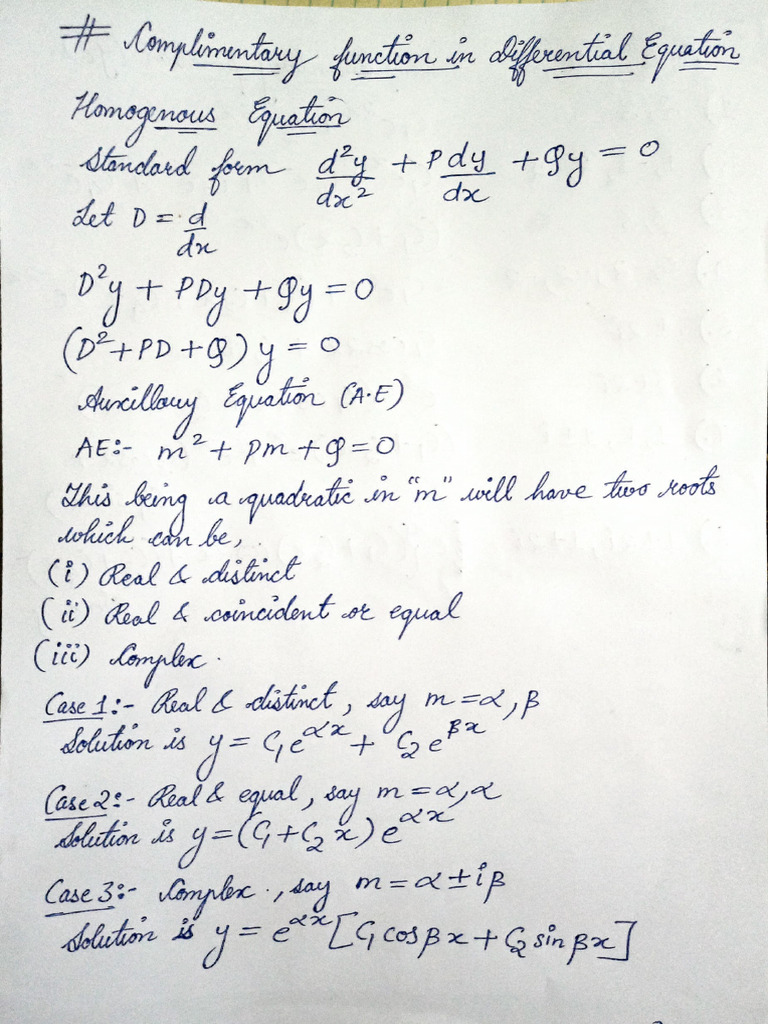 # Complimentary function in Differential Equation
Homogenous Equation
Standard form d²y/dx² + P dy/dx + Qy = 0
Let D = d/dx
D²y + PDy + Qy = 0
(D² + PD + Q) y = 0
Auxillary Equation (A.E)
AE:- m² + Pm + Q = 0
This being a quadratic in "m" will have two roots
which can be,
(i) Real & distinct
(ii) Real & coincident or equal
(iii) Complex.
Case 1:- Real & distinct, say m = α, β
Solution is y = C₁e^αx + C₂e^βx
Case 2:- Real & equal, say m = α, α
Solution is y = (C₁ + C₂x) e^αx
Case 3:- Complex., say m = α ± iβ
Solution is y = e^αx [C₁ cos βx + C₂ sin βx]